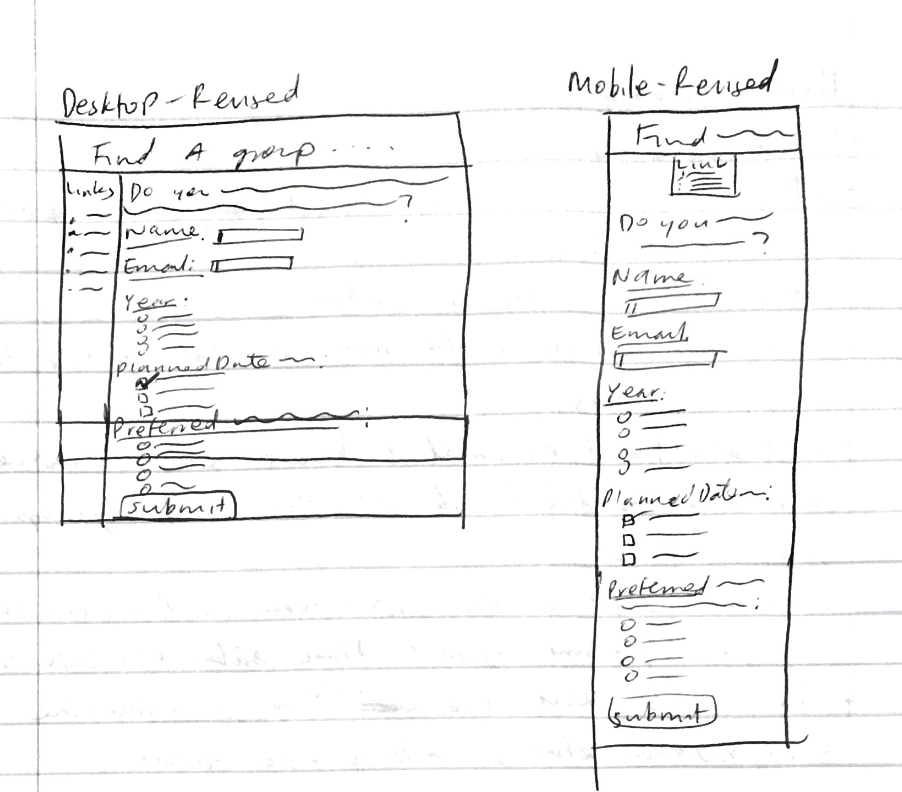 Desktop - Revised
Find A group ....
Links
Do you
?
Name.
Email:
Year:
Planned Date :
Preferred :
submit
Mobile - Revised
Find
Link
Do you
?
Name
Email
Year:
Planned Date :
Preferred
:
submit